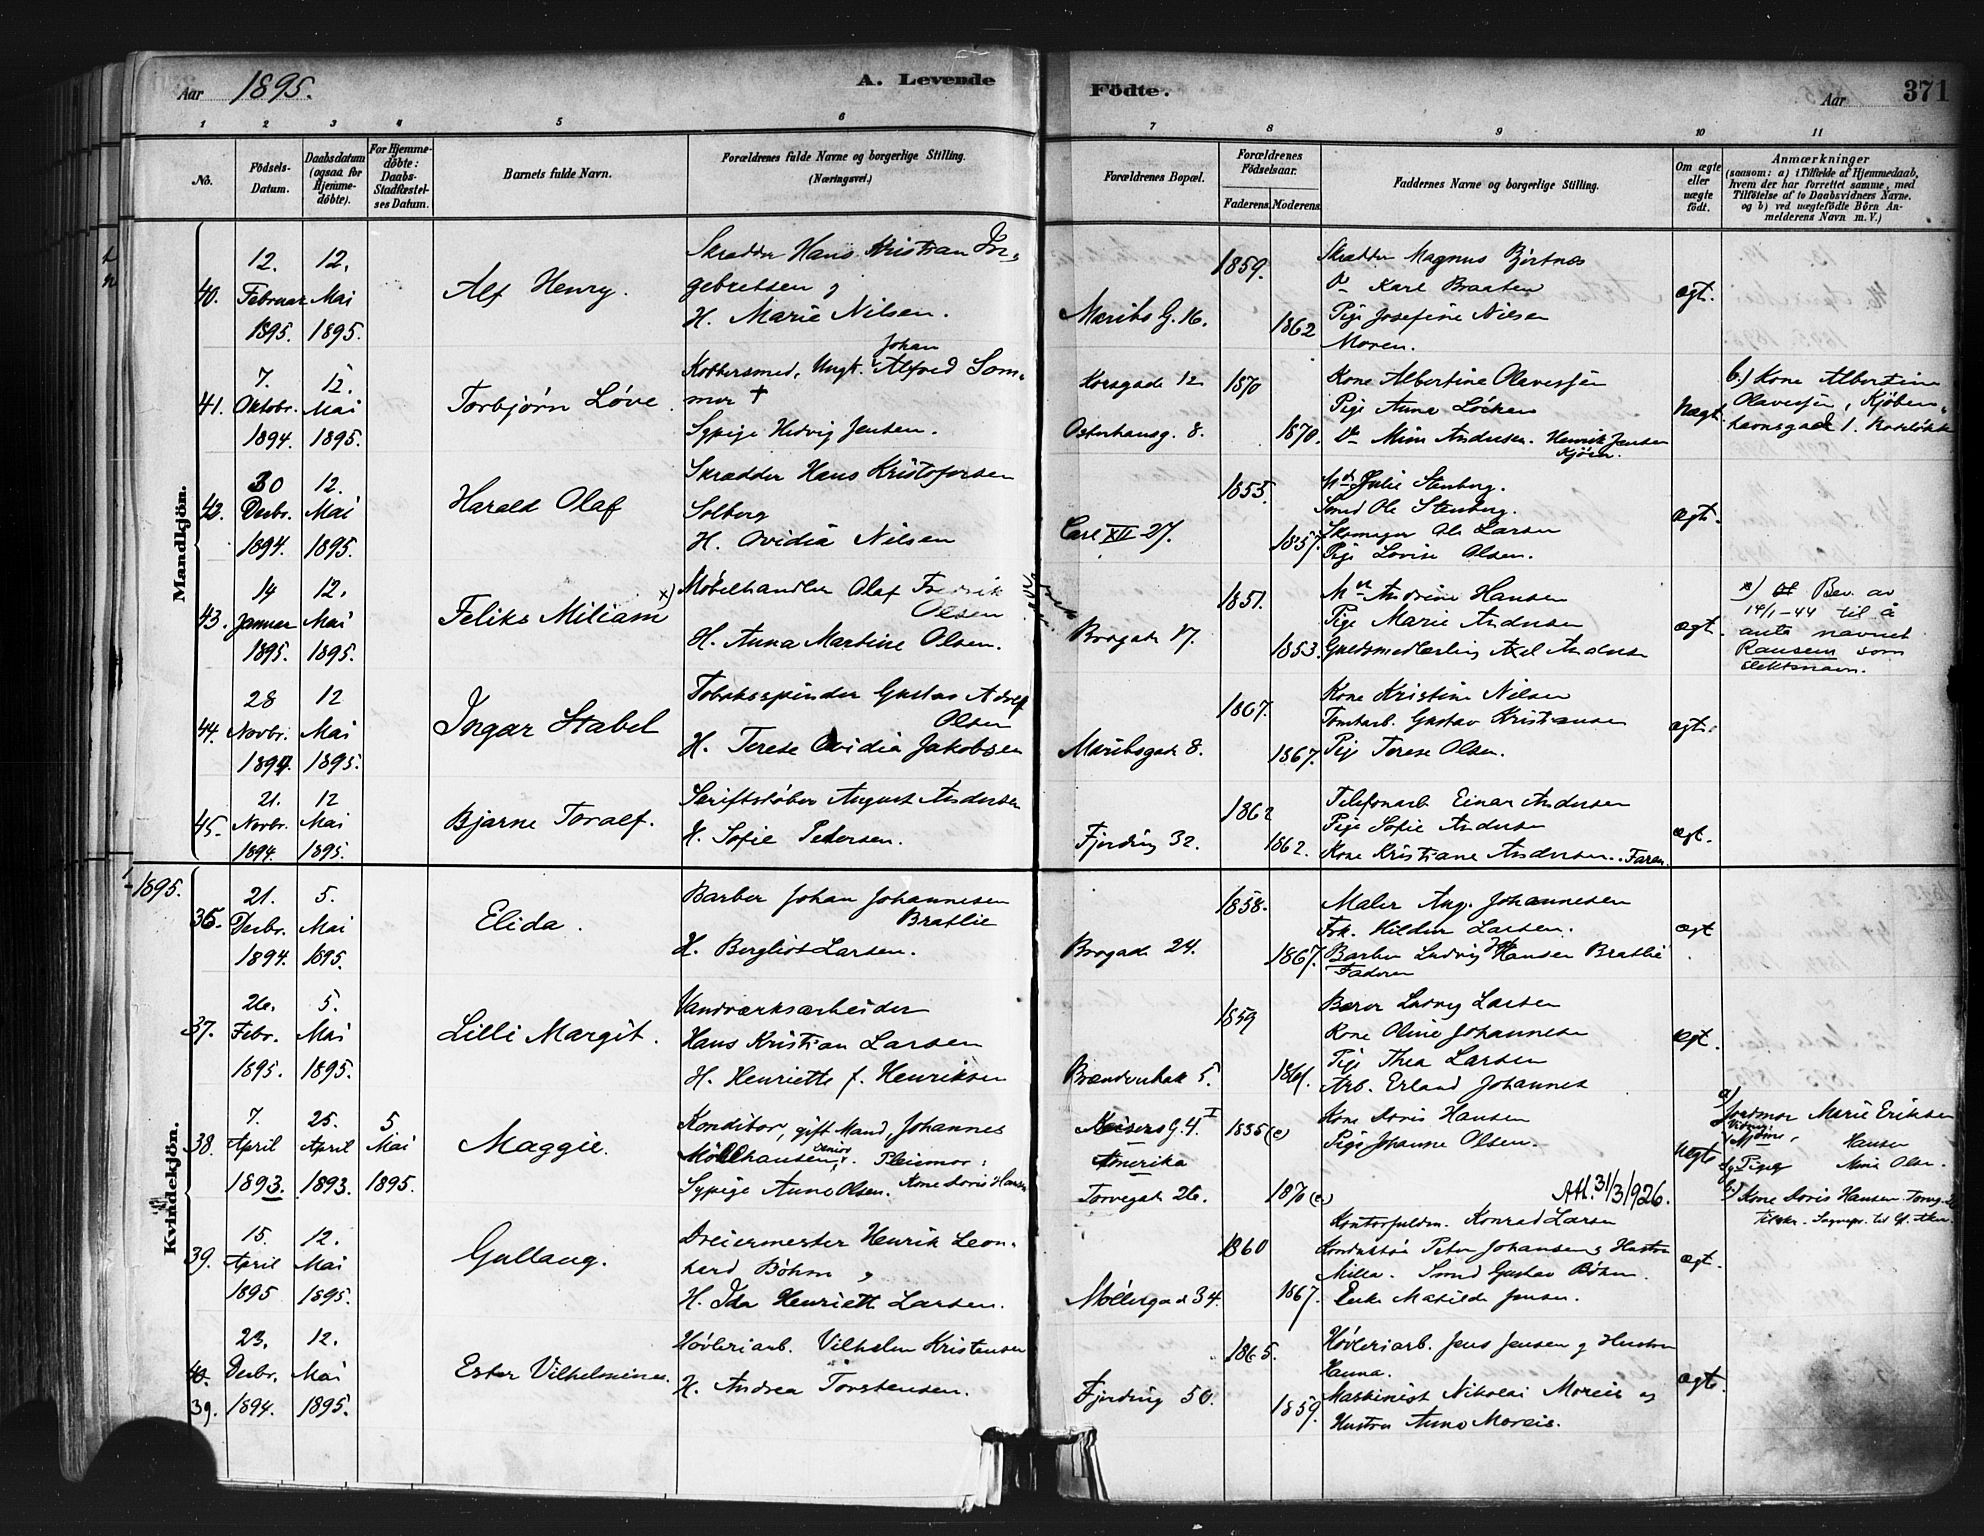 Aar 1895. A. Levende
Födte. Aar 371
1 2 3 4 5 6
7 8 9 10 11
No.
Födsels-
Datum.
Daabsdatum
(ogsaa for
Hjemme-
döbte).
For Hjemme-
döbte:
Daabs-
Stadfæstel-
ses Datum.
Barnets fulde Navn.
Forældrenes fulde Navne og borgerlige Stilling.
(Næringsvei.)
Forældrenes Bopæl.
Forældrenes
Födselsaar.
Faderens. Moderens.
Faddernes Navne og borgerlige Stilling.
Om ægte
eller
uægte
födt.
Anmærkninger
(saasom: a) i Tilfælde af Hjemmedaab,
hvem der har forrettet samme, med
Tilföielse af to Daabsvidners Navne.
og b) ved uægtefödte Börn An-
melderens Navn m. V.)
Mandkjön.
40. 12. Februar 1895. 12. Mai 1895.
Alf Henry.
Skrædder Hans Kristian In-
gebretsen og
H. Marie Nilsen.
Maribs G. 16.
1859. 1862
Skrædder Magnus Björtnes
Do Karl Braaten
Pige Josefine Nilsen
Moren.
ægt.
41. 7. Oktobr. 1894. 12. Mai 1895.
Torbjørn Løve
Kobbersmed, Ungk. Johan Alfred Som-
mer †
Sypige Hedvig Jensen.
Korsgade 12
Osterhausg. 8.
1870 1870.
Kone Albertine Olavesen
Pige Anna Löcken
Do Mina Andersen. Henrik Jensen
Uægt.
b.) Kone Albertine
Olavesen, Kjöben-
havnsgade 1.
42. 30 Decbr. 1894. 12. Mai 1895.
Harald Olaf
Skrædder Hans Kristofersen
Solberg
H. Ovidia Nilsen
Carl XII 27.
1855. 1857.
Julie Stenberg.
Smed Ole Stenberg.
Skomager Ole Larsen
Pige Lovise Olsen.
ægt.
43. 14 Januar 1895. 12. Mai 1895.
Feliks Miliam x)
Møbelhandler Olaf Fredrik
Olsen
H. Anna Martine Olsen.
Brogade 17.
1851. 1853.
Andrine Hansen
Pige Marie Andersen
Guldsmedlærling Axel Andersen
ægt.
x) Bev. av
14/1-44 til å
anta navnet
Ransem som
slektsnavn.
44. 28 Novbr. 1894. 12 Mai 1895.
Ingar Stabel
Tobaksspinder Gustav Adolf
Olsen
H. Terese Ovidia Jakobsen
Maribsgade 8.
1867. 1867.
Kone Kristine Nilsen
Tomtarb. Gustav Kristiansen
Pige Terese Olsen.
ægt.
45. 21. Novbr. 1894. 12 Mai 1895.
Bjarne Toralf.
Skriftstøber August Andersen
H. Sofie Pedersen.
Fjerding 32.
1862 1862.
Telefonarb Einar Andersen
Pige Sofie Andersen
Kone Kristiane Andersen. Faren.
ægt.
1895.
Kvindekjön.
36. 21. Decbr. 1894. 5. Mai 1895.
Elida.
Barber Johan Johannesen
Bratlie
H. Bergliot Larsen.
Brogade 24.
1858. 1867.
Maler Aug. Johannesen
Frk. Hilda Larsen.
Barber Ludvig Hansen Bratlie
Faderen
ægt
37. 26. Febr. 1895. 5. Mai 1895.
Lilli Margit.
Vandværksarbeider
Hans Kristian Larsen
H. Henriette f. Henriksen
5.
1859 1861.
Larsen
Kone Oline Johannesen
Pige Thea Larsen
Arb. Erland Johannes
ægt.
38. 7. April 1893. 25. April 1893. 5 Mai 1895.
Maggie.
Konditor, gift Mand, Johannes
Möllhausen, senior. Pleiemor:
Sypige Anna Olsen. Kone Doris Hansen
Keisers G. 4. I
Amerika
Torvegade 26.
1835 (c) 1870 (c)
Kone Doris Hansen
Pige Johanne Olsen.
Att. 31/3/926.
Uægte
a)
Jordmor Marie Eriksen
Hansen
Pige Olsen.
b) Kone Doris Hansen.
39. 15. April 1895 12. Mai 1895.
Gullaug.
Dreiermester Henrik Leon-
hard Böhm og
H. Ida Henriette Larsen.
Møllergade 34.
1860 1867.
Kontorfuldm. Konrad Larsen
Konduktör Peter Johansen og Hustru
Milla. Smed Gustav Böhm.
Enke Matilde Jensen.
ægt.
40. 39. 23. Decbr. 1894. 12. Mai 1895.
Ester Vilhelmine.
Høvleriarb. Vilhelm Kristensen
H. Andrea Torstensen.
Fjerding 50.
1865. 1859.
Høvleriarb. Jens Jensen og Hustru
Hanna.
Maskinist Nikolai Moreis og
Hustru Anna Moreis.
ægte.